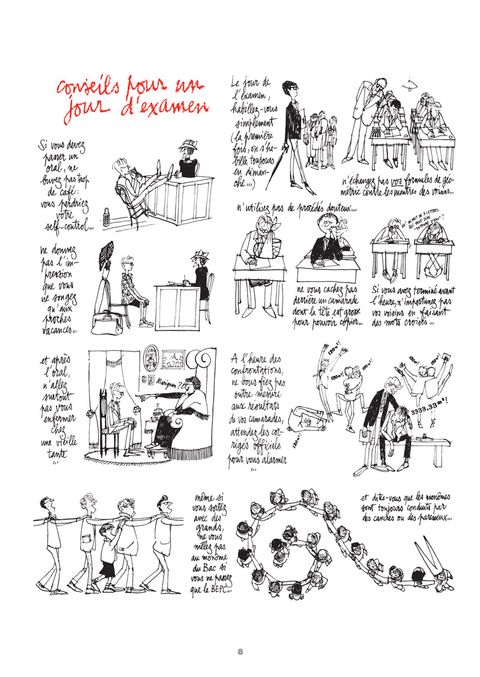 conseils pour un
jour d'examen
Si vous devez
passer un
oral, ne
buvez pas trop
de café:
vous perdriez
votre
self-control...
Le jour de
l'examen,
habillez-vous
simplement
(la première
fois, on s'ha-
bille toujours
en diman-
che...)
n'échangez pas vos formules de géo-
métrie contre les montres des voisins...
n'utilisez pas de procédés douteux...
ne donnez
pas l'im-
pression
que vous
ne songez
qu'aux
proches
vacances...
ne vous cachez pas
derrière un camarade
dont la tête est grosse
pour pouvoir copier...
Si vous avez terminé avant
l'heure, n'importunez pas
vos voisins en faisant
des mots croisés...
et après
l'oral,
n'allez
surtout
pas vous
enfermer
chez
une vieille
tante
...
A l'heure des
confrontations,
ne vous fiez pas
outre mesure
aux résultats
de vos camarades,
attendez les cor-
rigés officiels
pour vous alarmer
...
même si
vous sortez
avec des
grands,
ne vous
mêlez pas
au monôme
du Bac si
vous ne passez
que le BEPC...
et dites-vous que les monômes
sont toujours conduits par
des cancres ou des paresseux...
8